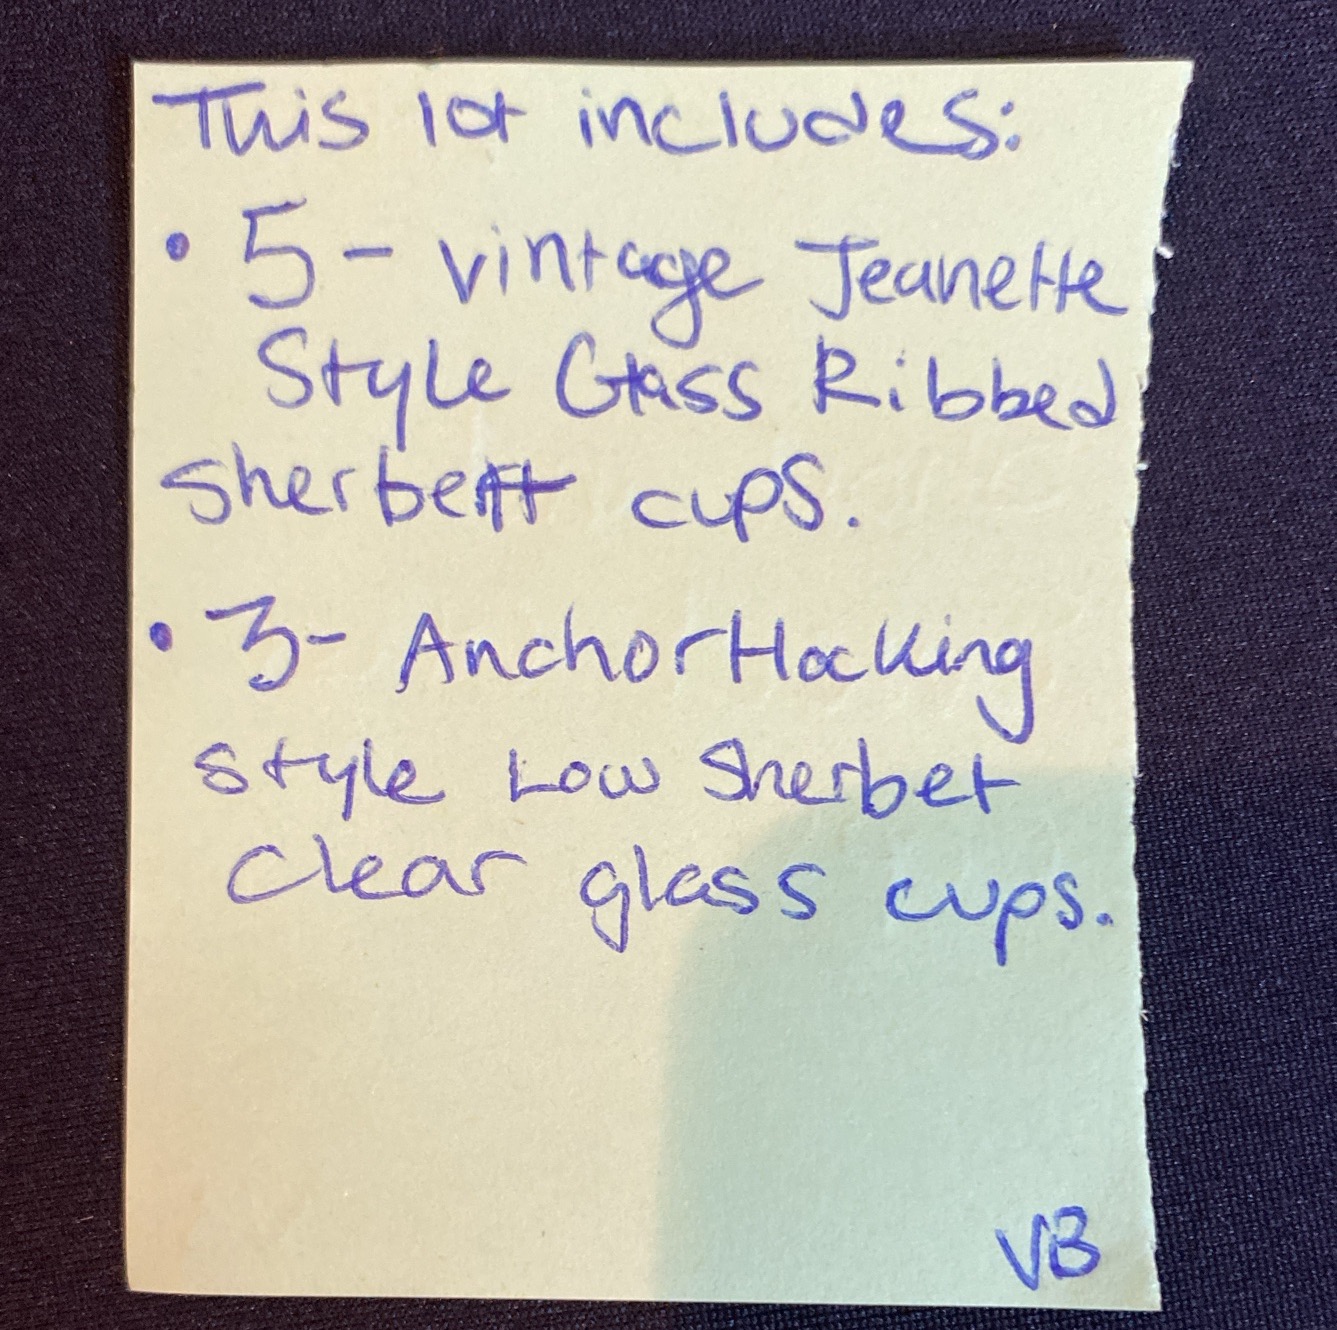 This lot includes:
• 5 - vintage Jeanette
Style Glass Ribbed
sherbett cups.
• 3- Anchor Hocking
style Low Sherbet
clear glass cups.
VB